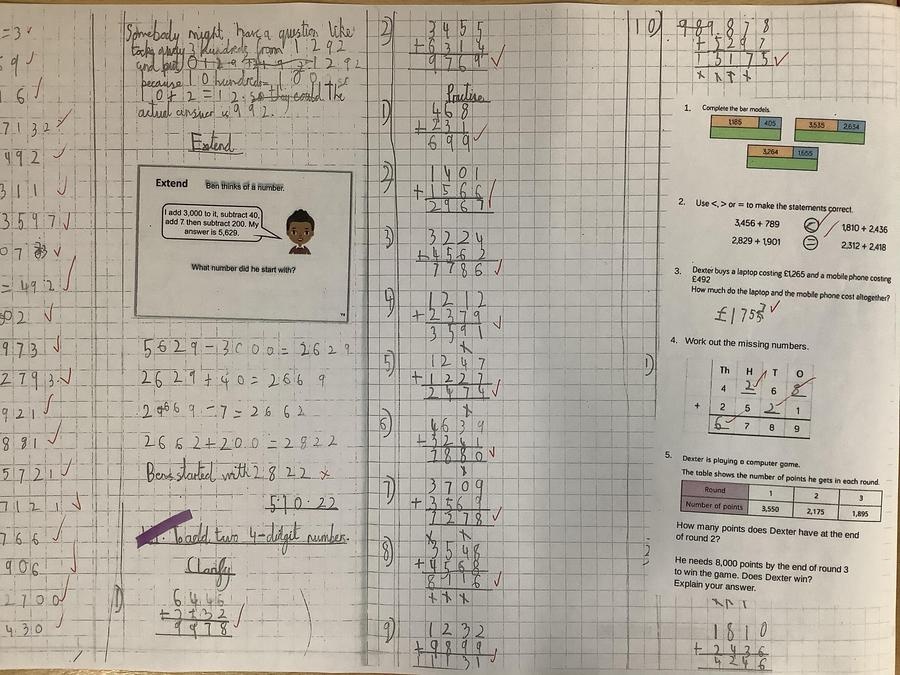 =3
59
16
7132
492
311
3597
07
=492
502
973
2793
921
881
5721
712
766
906
2700
430
Somebody might have a question like
take away 3 hundreds from 1292
and put
because 10 hundreds
10+2=12 so they could The
actual answer is 992.
Extend
Extend Ben thinks of a number.
I add 3,000 to it, subtract 40,
add 7 then subtract 200. My
answer is 5,629.
What number did he start with?
5629-3000=2629
2629+40=2669
2669-7=2662
2662+200=2822
Ben started with 2822
5.10.22
to add two 4-digit number.
Clarify
1)
6446
+
9978
2)
3455
+6314
9769
Practise
1)
468
+231
699
2)
1401
+1566
2967
3)
3224
+4562
7786
4)
1212
+2379
3591
5)
1247
+1227
2474
6)
4639
+3241
7880
7)
3709
+3569
7278
8)
3548
+4568
8116
9)
1232
+9899
1131
10)
989878
+5297
15175
1. Complete the bar models.
1,185 405 3,535 2,634
3,264 1,655
2. Use <, > or = to make the statements correct.
3,456 + 789 < 1,810 + 2,436
2,829 + 1,901 = 2,312 + 2,418
3. Dexter buys a laptop costing £1,265 and a mobile phone costing
£492
How much do the laptop and the mobile phone cost altogether?
£1757
4. Work out the missing numbers.
1)
Th H T O
4 2 6 8
+ 2 5 2 1
6 7 8 9
5. Dexter is playing a computer game.
The table shows the number of points he gets in each round.
Round 1 2 3
Number of points 3,550 2,175 1,895
How many points does Dexter have at the end
of round 2?
He needs 8,000 points by the end of round 3
to win the game. Does Dexter win?
Explain your answer.
1810
+2436
4246